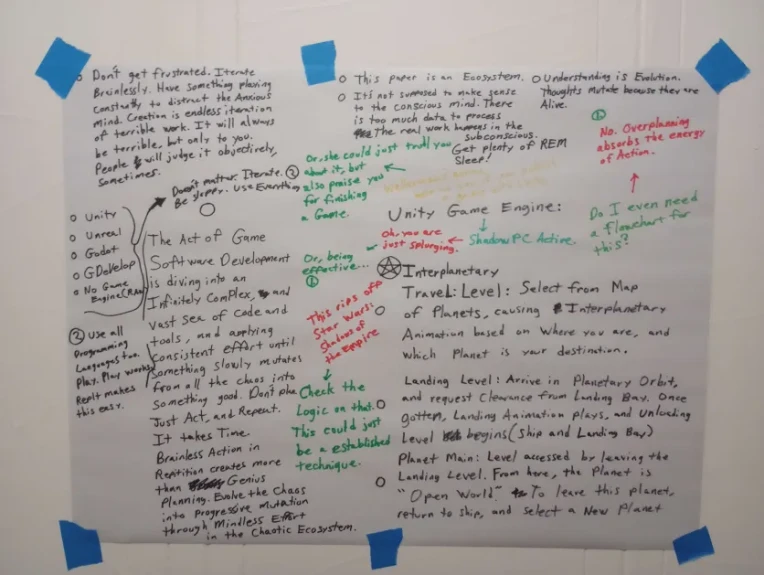 Don't get frustrated. Iterate
Brainlessly. Have something playing
constantly to distract the Anxious
mind. Creation is endless iteration
of terrible work. It will always
be terrible, but only to you.
People will judge it objectively,
sometimes.
Doesn't matter. Iterate.
Be sloppy. Use Everything
Unity
Unreal
Godot
GDevelop
No Game
Engine
2 Use all
Programming
Languages too.
Play. Play works
Replit makes
this easy.
The Act of Game
Software Development
is diving into an
Infinitely Complex, and
Vast Sea of Code and
tools, and applying
consistent effort until
something slowly mutates
from all the chaos into
Something good. Don't
Just Act, and Repeat.
It takes Time.
Brainless Action in
Repitition creates more
than Genius
Planning. Evolve the Chaos
into Progressive Mutation
through Mindless Effort
in the Chaotic Ecosystem.
This paper is an Ecosystem.
It's not supposed to make sense
to the conscious mind. There
is too much data to process
The real work happens in the
subconscious.
Get plenty of REM
Sleep!
Understanding is Evolution.
Thoughts mutate because they are
Alive.
1
No. Overplanning
absorbs the energy
of Action.
Do I even need
a flowchart for
this?
2
Or, she could just troll you
about it, but
also praise you
for finishing
a Game.
Unity Game Engine:
Shadow PC Active.
Oh, you are
just splurging.
Or, being
effective...
1
This rips off
Star Wars:
Shadows of
the Empire
Check the
Logic on that.
This could just
be a established
technique.
Interplanetary
Travel: Level: Select from Map
of Planets, causing Interplanetary
Animation based on Where you are, and
which Planet is your destination.
Landing Level: Arrive in Planetary Orbit,
and request Clearance from Landing Bay. Once
gotten, Landing Animation plays, and Unloading
Level begins (Ship and Landing Bay)
Planet Main: Level accessed by leaving the
Landing Level. From here, the Planet is
"Open World" To leave this planet,
return to ship, and select a New Planet